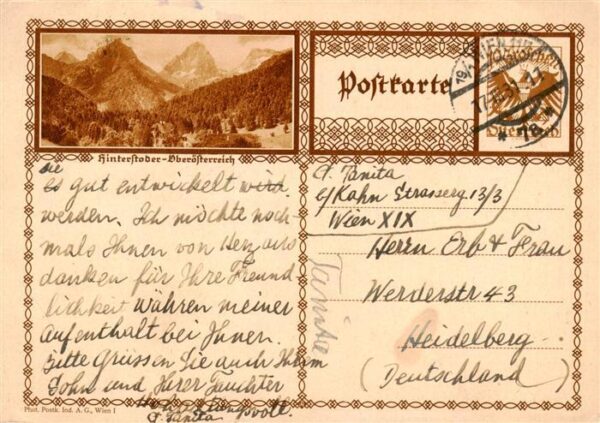 Postkarte
Hinterstoder-Oberösterreich
sie
es gut entwickelt wird.
werden. Ich möchte noch-
mals Ihnen von Herz aus
danken für Ihre Freund
lichkeit währen meiner
Aufenthalt bei Ihnen.
Bitte Grüssen Sie auch Ihrem
Sohn und Ihrer Tauchter
Hochachtungsvoll.
P. Tanita
P. Tanita
c/Kahn Strasserg 13/3
Wien XIX
Herrn Erb & Frau
Werderstr 43
Heidelberg
(Deutschland)
Tanita
WIEN
7a
Österreich
Phot. Postk. Ind. A. G., Wien I